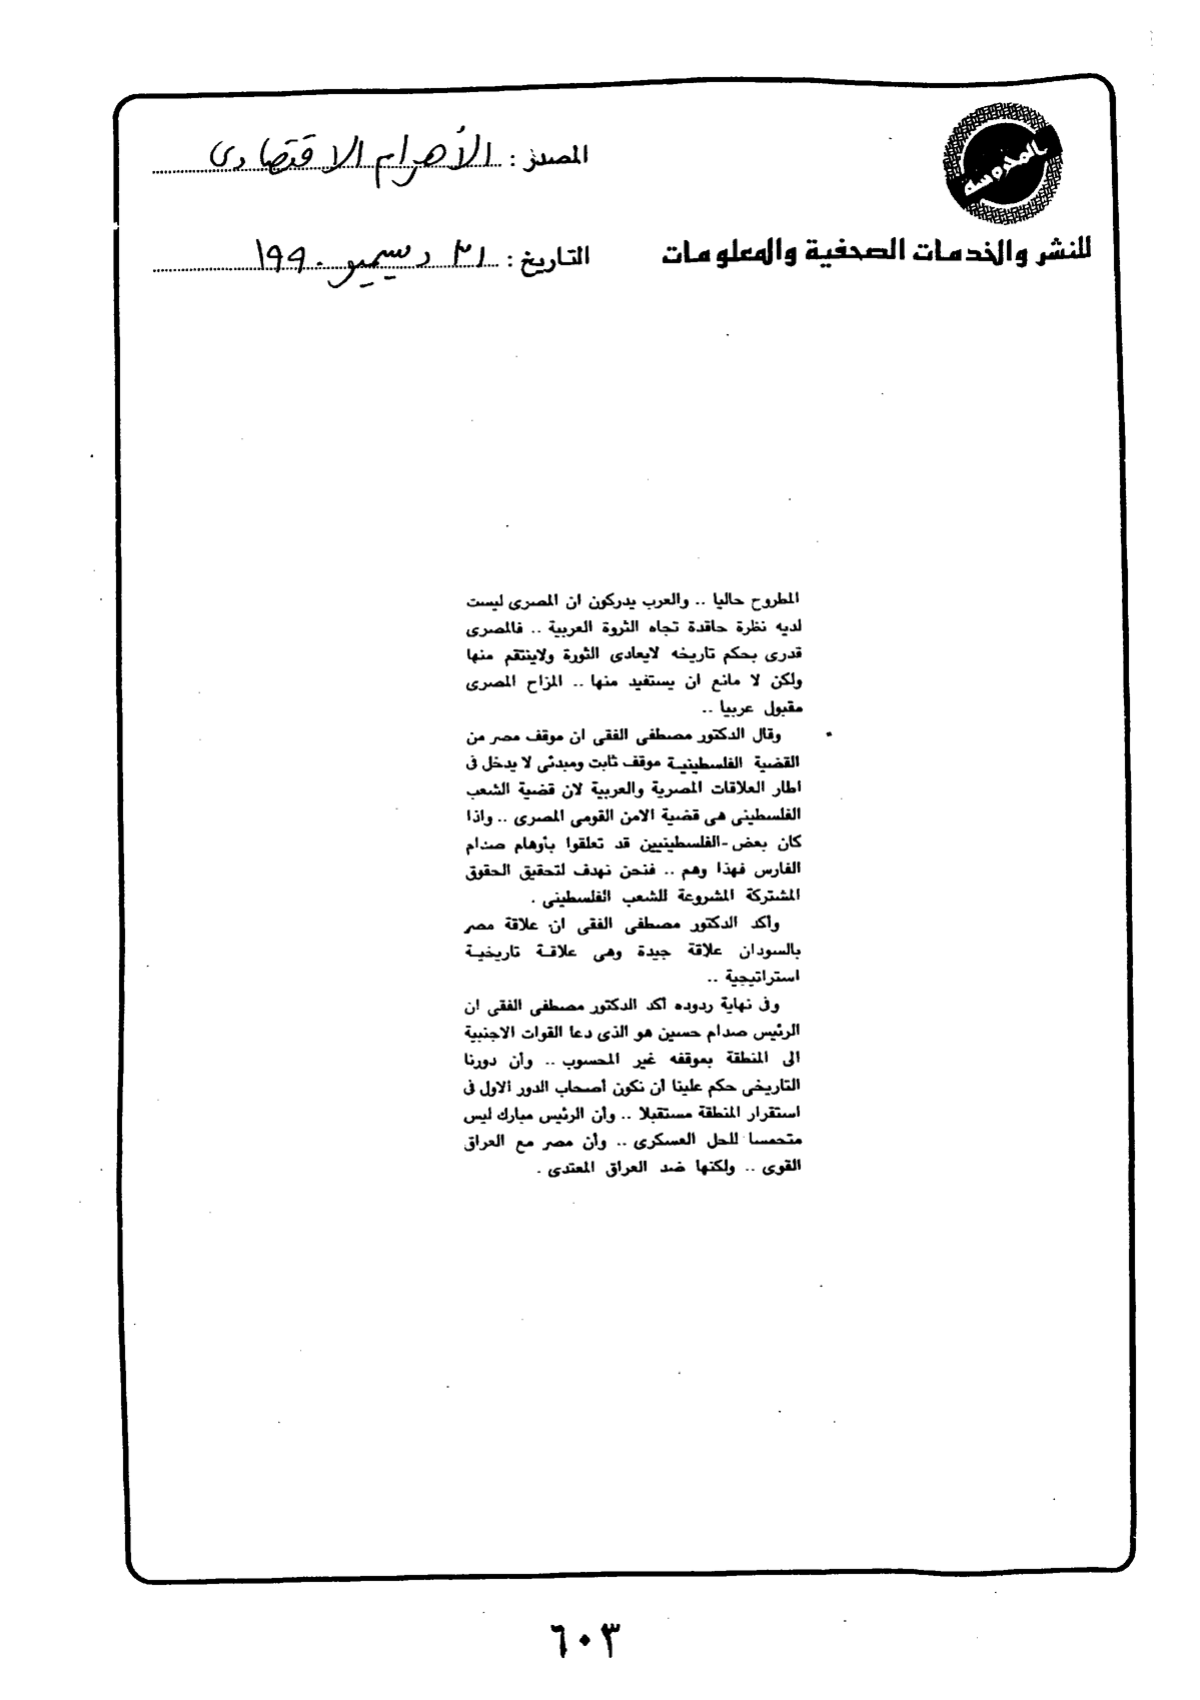 المحروسة
للنشر والخدمات الصحفية والمعلومات
المصدر : الأهرام الاقتصادى
التاريخ : ٣١ ديسمبر ١٩٩٠
المطروح حاليا .. والعرب يدركون ان المصرى ليست
لديه نظرة حاقدة تجاه الثروة العربية .. فالمصرى
قدرى بحكم تاريخه لايعادى الثورة ولاينتقم منها
ولكن لا مانع ان يستفيد منها .. المزاج المصرى
مقبول عربيا ..
وقال الدكتور مصطفى الفقى ان موقف مصر من
القضية الفلسطينية موقف ثابت ومبدئى لا يدخل فى
اطار العلاقات المصرية والعربية لان قضية الشعب
الفلسطينى هى قضية الامن القومى المصرى .. واذا
كان بعض -الفلسطينيين قد تعلقوا بأوهام صدام
الفارس فهذا وهم .. فنحن نهدف لتحقيق الحقوق
المشتركة المشروعة للشعب الفلسطينى .
وأكد الدكتور مصطفى الفقى ان علاقة مصر
بالسودان علاقة جيدة وهى علاقة تاريخية
استراتيجية ..
وفى نهاية ردوده أكد الدكتور مصطفى الفقى ان
الرئيس صدام حسين هو الذى دعا القوات الاجنبية
الى المنطقة بموقفه غير المحسوب .. وأن دورنا
التاريخى حكم علينا أن نكون أصحاب الدور الاول فى
استقرار المنطقة مستقبلا .. وأن الرئيس مبارك ليس
متحمسا للحل العسكرى .. وأن مصر مع العراق
القوى .. ولكنها ضد العراق المعتدى .
٦٠٣